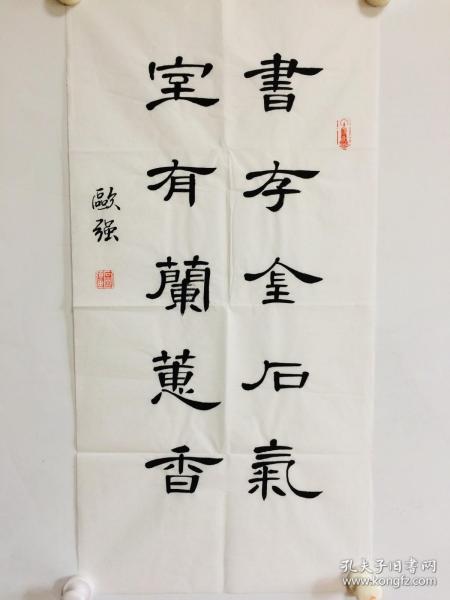 書存金石氣
室有蘭蕙香
歐强
孔夫子旧书网
www.kongfz.com